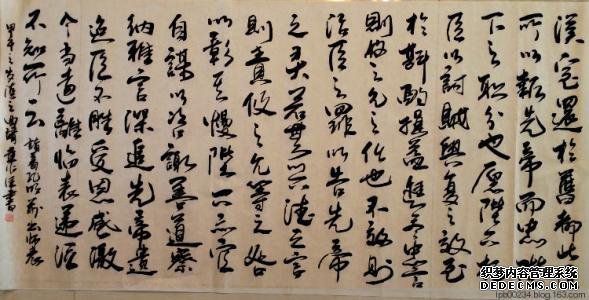 漢室還於舊都此
所以報先帝而忠陛
下之職分也願陛下托
臣以討賊興復之效至
於斟酌損益進盡忠言
則攸之允之任也不效則
治臣之罪以告先帝
之靈若無興德之言
則責攸之允等之咎
以彰其慢陛下亦宜
自謀以咨諏善道察
納雅言深追先帝遺
詔臣不勝受恩感激
今當遠離臨表涕泣
不知所云 諸葛孔明前出師表
甲午之 書
织梦内容管理系统
DEDECMS.COM